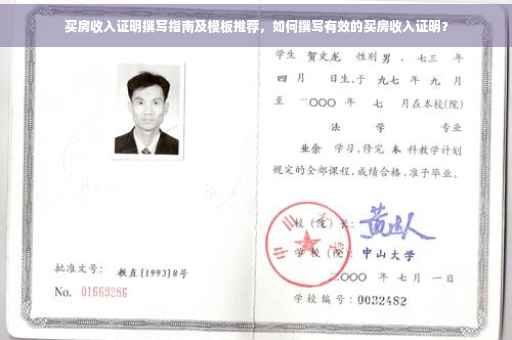 买房收入证明撰写指南及模板推荐，如何撰写有效的买房收入证明？
学生 贺文龙 性别 男，七三 年
四 月 日生，于 九七 年 九 月
至 二〇〇〇 年 七 月在本校(院)
法 学 专业
业余 学习，修完 本 科教学计划
规定的全部课程，成绩合格，准予毕业。
校（院）长：
学 校（院）：中山大学
二〇〇〇 年 七 月 一 日
学校编号：0032482
批准文号：教直[1993]8号
No. 01663286